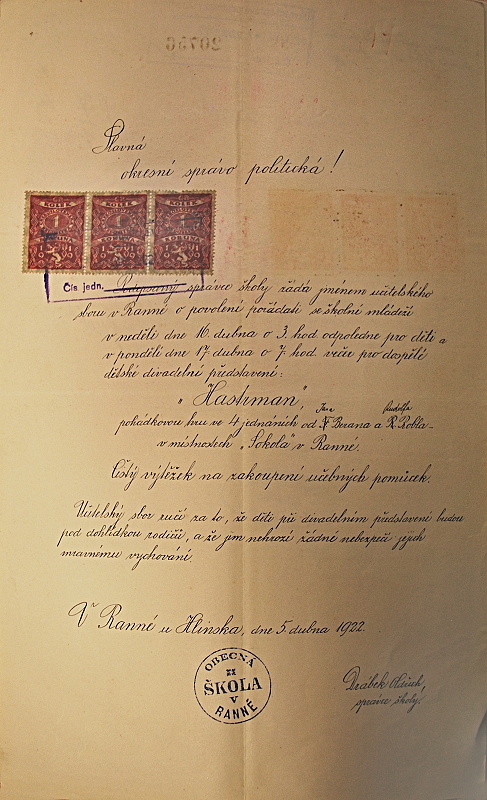 Slavná
okresní správo politická!
KOLEK KOLEK KOLEK
1 1 1
KORUNA KORUNA KORUNA
1919 1919
Čís jedn.
Podepsaný správce školy žádá jménem učitelského
sboru v Ranné o povolení pořádati se školní mládeží
v neděli dne 16. dubna o 3. hod odpoledne pro děti a
v pondělí dne 17. dubna o 7. hod. večer pro dospělé
dětské divadelní představení:
„Hastrman“,
Jana Rudolfa
pohádkovou hru ve 4 jednáních od F Berana a R. Kobla
v místnostech „Sokola“ v Ranné.
Čistý výtěžek na zakoupení učebných pomůcek.
Učitelský sbor ručí za to, že děti při divadelním představení budou
pod dohlídkou rodičů, a že jim nehrozí žádné nebezpečí jejich
mravnému vychování.
V Ranné u Hlinska, dne 5. dubna 1922.
OBECNÁ
ŠKOLA
V
RANNÉ
Drábek Oldřich,
správce školy.